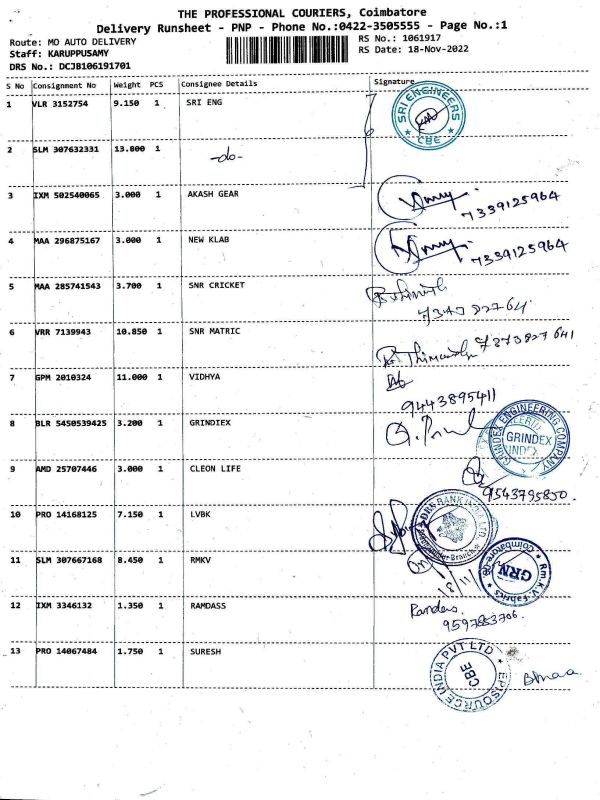 THE PROFESSIONAL COURIERS, Coimbatore
Delivery Runsheet - PNP - Phone No.:0422-3505555 - Page No.:1
Route: MO AUTO DELIVERY RS No.: 1061917
Staff: KARUPPUSAMY RS Date: 18-Nov-2022
DRS No.: DCJB106191701
S No Consignment No Weight PCS Consignee Details Signature
1 VLR 3152754 9.150 1 SRI ENG
SRI ENGINEERS CBE
2 SLM 307632331 13.800 1 -do-
3 IXM 502540065 3.000 1 AKASH GEAR
7339125964
4 MAA 296875167 3.000 1 NEW KLAB
7339125964
5 MAA 285741543 3.700 1 SNR CRICKET
6 VRR 7139943 10.850 1 SNR MATRIC
7373827641
7 GPM 2010324 11.000 1 VIDHYA
9443895411
8 BLR 5450539425 3.200 1 GRINDIEX
GRINDEX ENGINEERING COMPANY
GRINDEX
9 AMD 25707446 3.000 1 CLEON LIFE
9543795850
10 PRO 14168125 7.150 1 LVBK
DBS BANK INDIA LTD
Branch
11 SLM 307667168 8.450 1 RMKV
Rm.K.V. Fabrics Coimbatore
GRN
18/11
12 IXM 3346132 1.350 1 RAMDASS
Ramdass
9597853706
13 PRO 14067484 1.750 1 SURESH
EPISOURCE INDIA PVT LTD
CBE